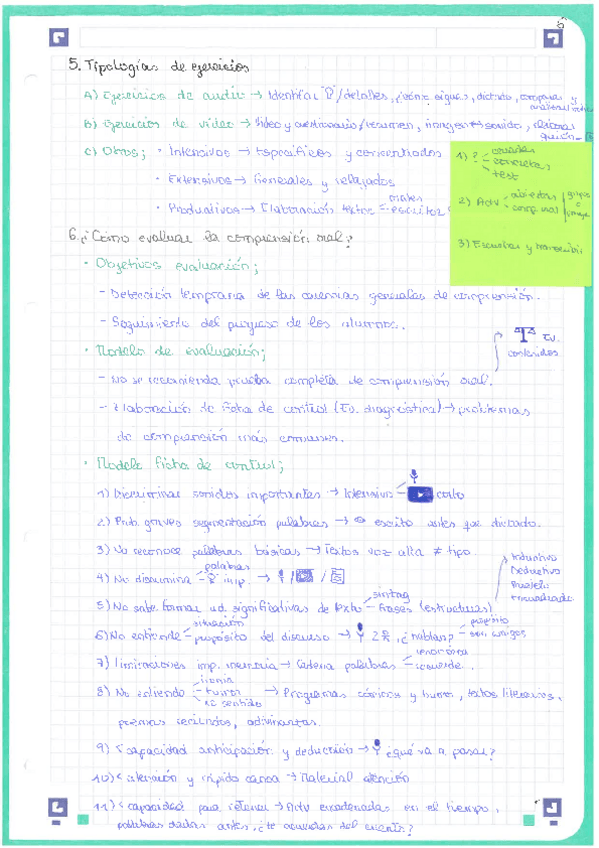 5. Tipologías de ejercicios
A) Ejercicios de audio → Identificar /detalles, ¿cómo sigue?, dictado, comparar y
B) Ejercicios de vídeo → Vídeo y cuestionario/resumen, imagen sonido,
C) Otros; · Intensivos → Específicos y concentrados
· Extensivos → Generales y relajados
· Productivos → Elaboración textos orales escritos
1) ? cerradas
concretas
test
2) Actv abiertas
3) Escuchar y transcribir
6. ¿Cómo evaluar la comprensión oral?
· Objetivos evaluación;
- Detección temprana de las carencias generales de comprensión.
- Seguimiento del progreso de los alumnos.
· Modelo de evaluación;
Ev. contenidos
- No se recomienda prueba completa de comprensión oral.
- Elaboración de Ficha de control (Ev. diagnóstica) → problemas
de comprensión más comunes.
· Modelo ficha de control;
1) Discriminar sonidos importantes → Intensivo corto
2) Prob. graves segmentación palabras → escrito antes que dictado.
3) No reconoce palabras básicas → Textos voz alta ≠ tipo.
4) No discrimina palabras imp. →
Inductivo
Deductivo
5) No sabe formar ud. significativas de texto - sintag frases (estructuras)
6) No entiende situación propósito del discurso → 2 ¿hablan? propósito
7) Limitaciones imp. memoria → Cadena palabras recuerde...
8) No entiende ironía humor sentido → Programas cómicos y humor, textos literarios,
poemas recitados, adivinanzas.
9) < capacidad anticipación y deducción → ¿qué va a pasar?
10) < atención y rápido cansa → Material atención
11) < capacidad para retener → Actv encadenadas en el tiempo,
palabras dadas antes, ¿te acuerdas del cuento?